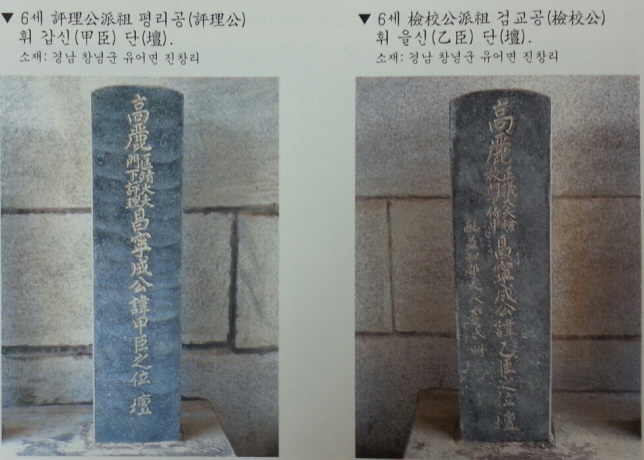 ▼ 6세 評理公派祖 평리공(評理公)
휘 갑신(甲臣) 단(壇).
소재: 경남 창녕군 유어면 진창리
高麗
匡靖大夫
門下評理
昌寧成公諱甲臣之位 壇
▼ 6세 檢校公派祖 검교공(檢校公)
휘 을신(乙臣) 단(壇).
소재: 경남 창녕군 유어면 진창리
高麗
昌寧成公諱乙臣之位 壇